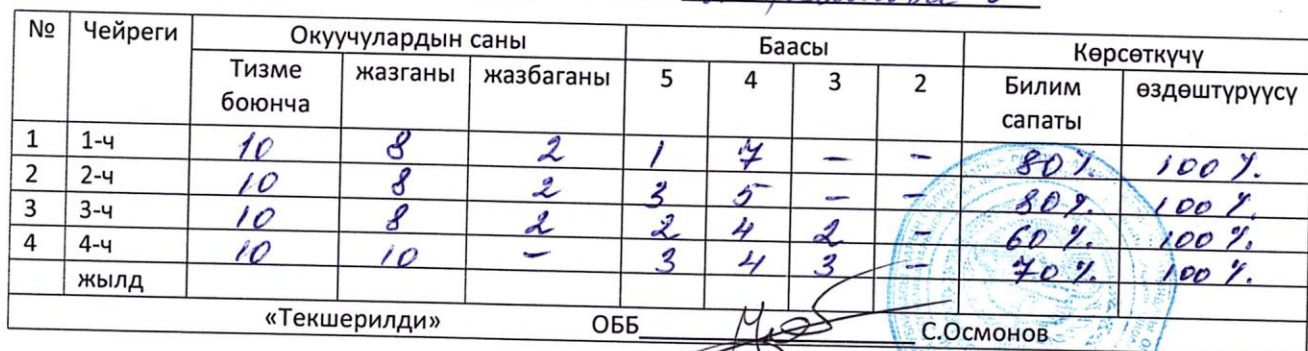 № Чейреги Окуучулардын саны Баасы Көрсөткүчү
Тизме боюнча жазганы жазбаганы 5 4 3 2 Билим сапаты өздөштүрүүсү
1 1-ч 10 8 2 1 7 – – 80%. 100%.
2 2-ч 10 8 2 3 5 – – 80%. 100%.
3 3-ч 10 8 2 2 4 2 – 60%. 100%.
4 4-ч 10 10 – 3 4 3 – 70%. 100%.
жылд
«Текшерилди» ОББ С.Осмонов